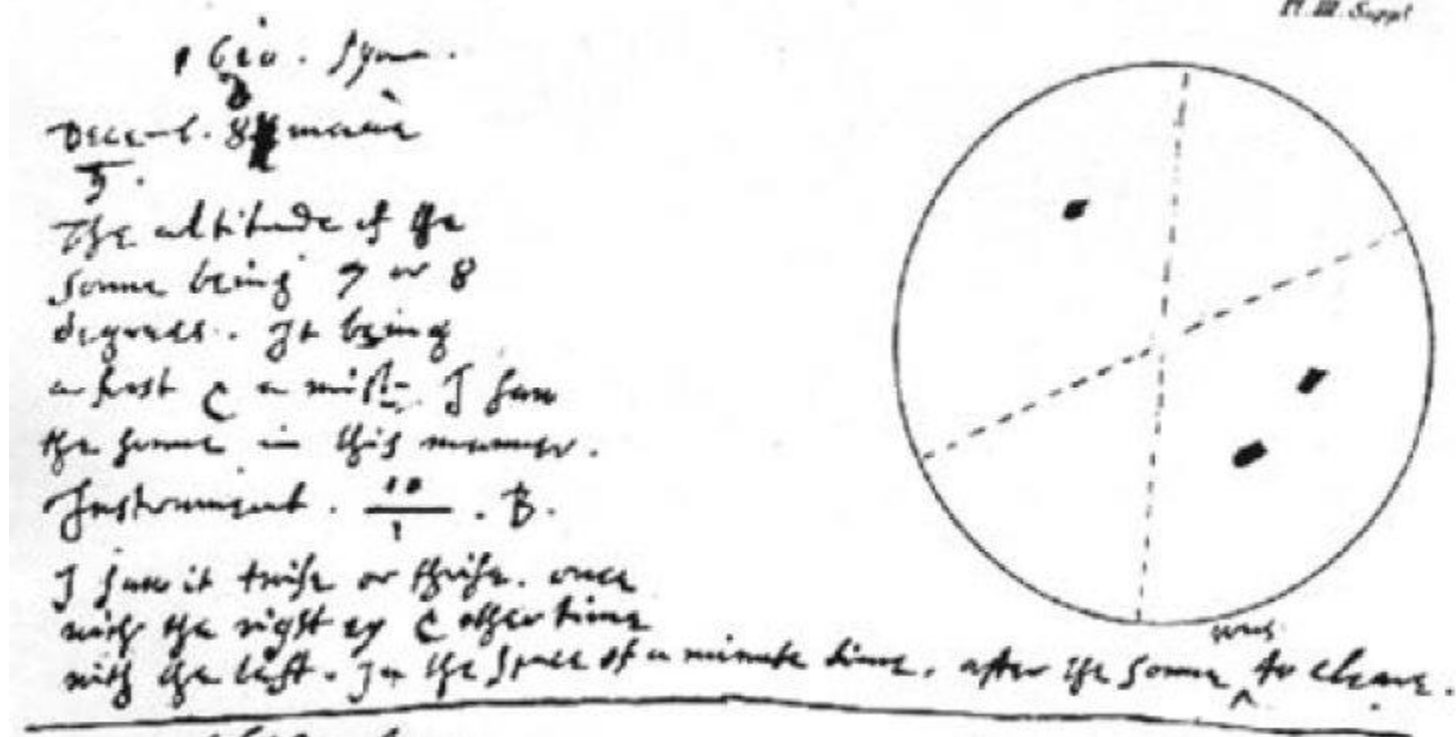 1610. Syon.
♄
Decemb. 8 mane
The altitude of the
Sonne being 7 or 8
degrees. It being
a frost & a mist. I saw
the sonne in this manner.
Instrument. 10/1 . B.
I saw it twise or thrise. once
with the right ey & other time
with the left. In the space of a minute time, after the Sonne was to cleare.